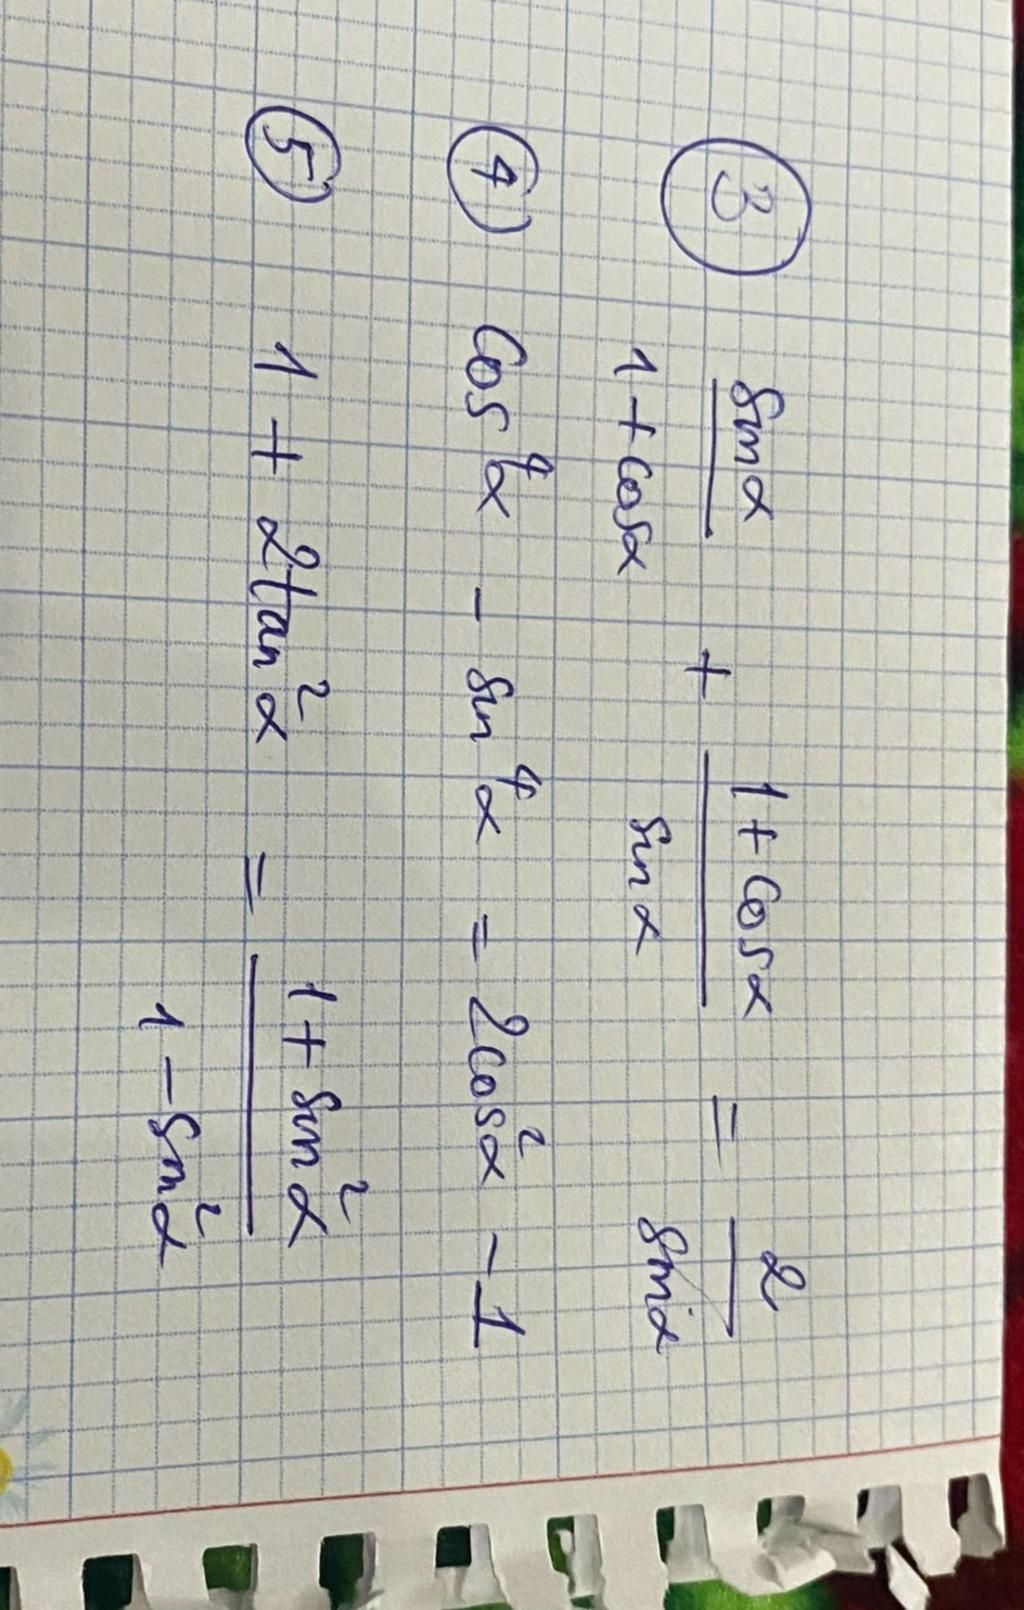 ③ sinα/(1+cosα) + (1+cosα)/sinα = 2/sinα
④ cos⁴α - sin⁴α = 2cos²α - 1
⑤ 1 + 2tan²α = (1+sin²α)/(1-sin²α)